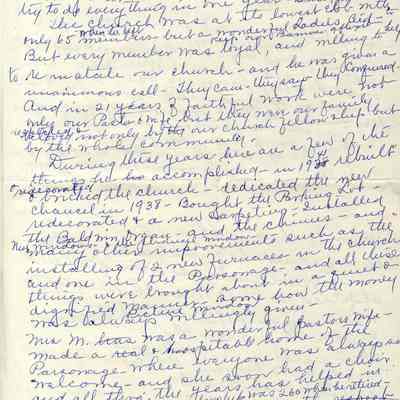 try to do everything in one year
The church was at its lowest ebb with
only 65 members but a wonderful Ladies Aid
But every member was loyal and willing to help
to reinstate our church - and he was given a
unanimous call - They came - they saw they conquered -
And in 21 years of faithful work were not
only our Pastor & Wife, but they were our family
respected & not only by our church fellowship but
by the whole community.
During these years here are a few of the
things he has accomplished - in 1938 rebuilt
redecorated & bricked the church - dedicated the new
chancel in 1938 - Bought the Parking Lot -
redecorated & a new carpeting - installed
the Baldwin organ - and the chimes - and
many other improvements such as the
installing of 2 new furnaces in the church
and one in the Parsonage - and all these
things were brought about in a quiet &
dignified manner - some how the money
was always willingly given -
Mrs M. was a wonderful Pastors Wife -
made a real & hospitable home of the
Parsonage where everyone was always so
welcome - and she soon had a choir
and all thru the years has helped in